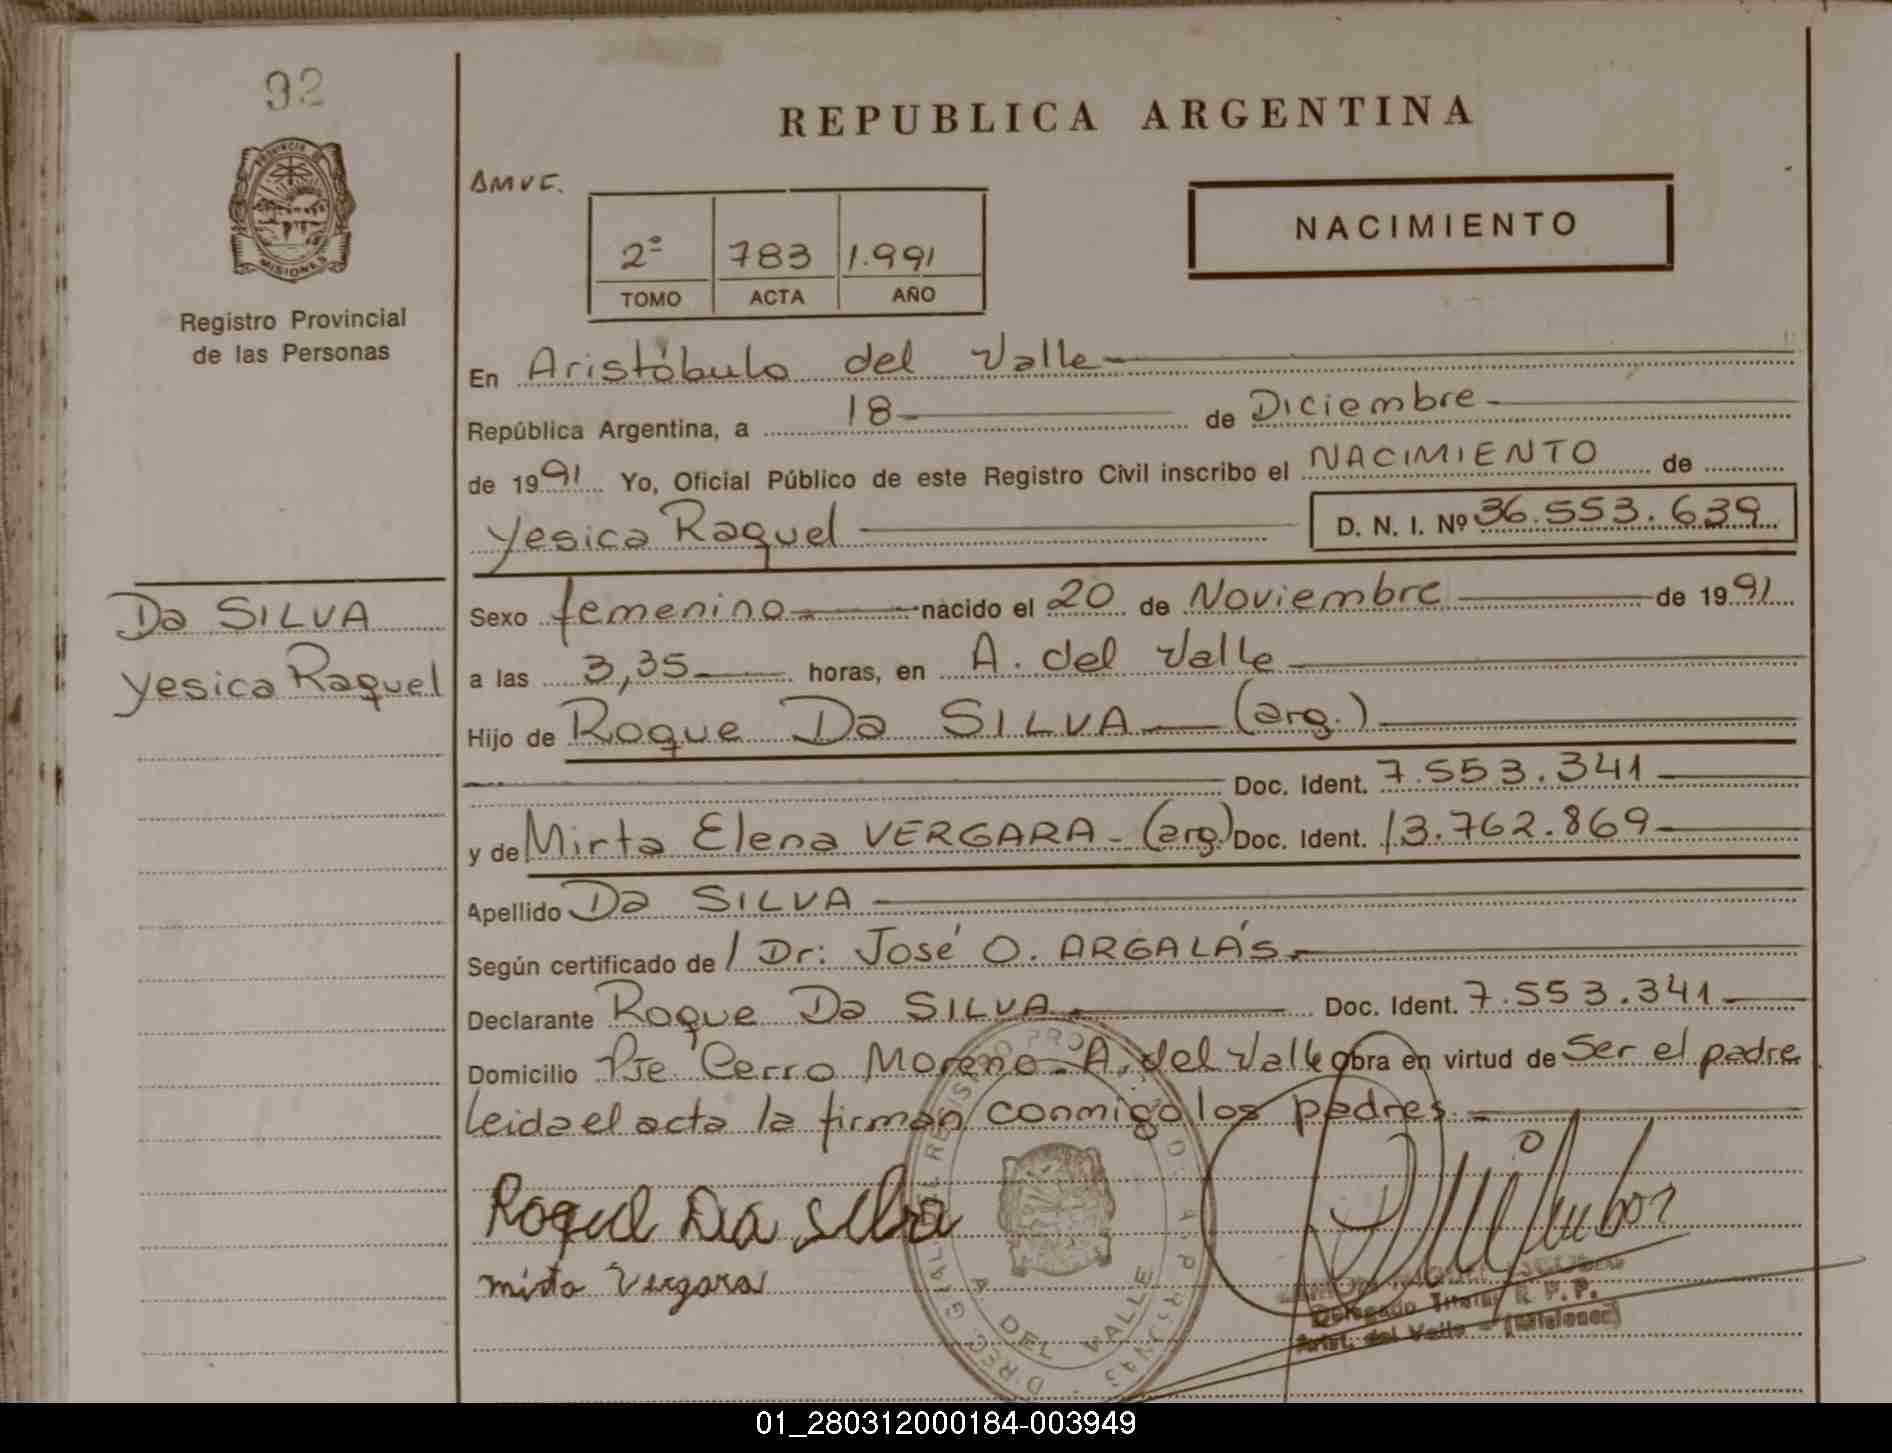 92
PROVINCIA DE
MISIONES
Registro Provincial
de las Personas
Da SILVA
Yesica Raquel
REPUBLICA ARGENTINA
NACIMIENTO
2º 783 1.991
TOMO ACTA AÑO
En Aristóbulo del Valle
República Argentina, a 18 de Diciembre
de 1991 Yo, Oficial Público de este Registro Civil inscribo el NACIMIENTO de
Yesica Raquel D. N. I. Nº 36.553.639
Sexo femenino nacido el 20 de Noviembre de 1991
a las 3,35 horas, en A. del Valle
Hijo de Roque Da SILVA (arg.)
Doc. Ident. 7.553.341
y de Mirta Elena VERGARA - (arg.) Doc. Ident. 13.762.869
Apellido Da SILVA
Según certificado de / Dr: José O. ARGALÁS
Declarante Roque Da SILVA Doc. Ident. 7.553.341
Domicilio Pje Cerro Moreno - A. del Valle obra en virtud de Ser el padre
Leida el acta la firman conmigo los padres.
Roque Da Silva
mirta Vergara
A. DEL VALLE
Delegado Titular R. P. P.
Arist. del Valle - (Misiones)
01_280312000184-003949